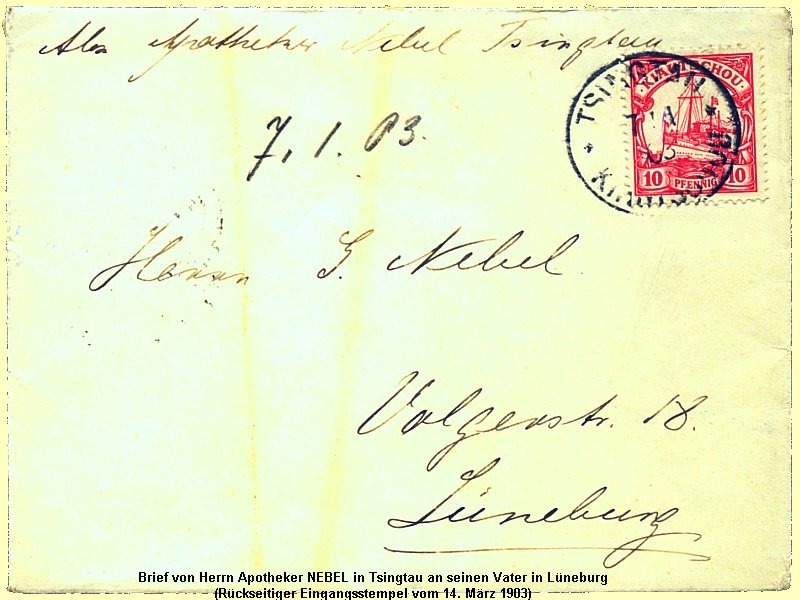 Abs Apotheker Nebel Tsingtau
KIAUTSCHOU
TSINGTAU
10 PFENNIG 10
7. 1. 03.
Herrn G. Nebel
Volgerstr. 18.
Lüneburg
Brief von Herrn Apotheker NEBEL in Tsingtau an seinen Vater in Lüneburg
(Rückseitiger Eingangsstempel vom 14. März 1903)